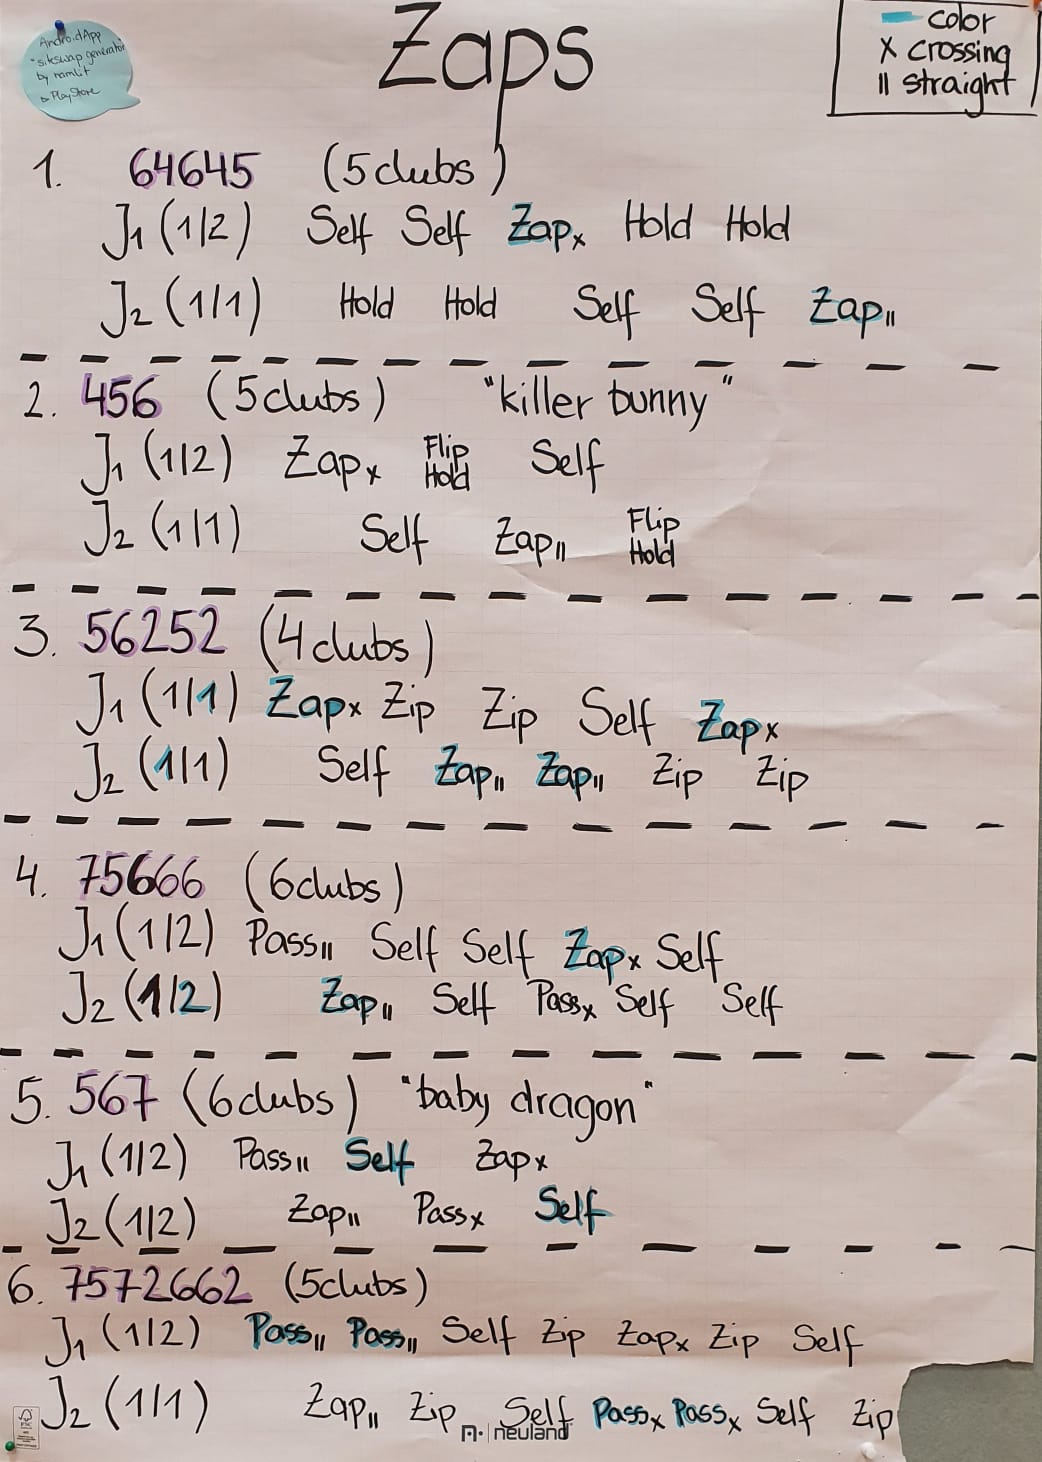 AndroidApp
"siteswap generator"
by namlit
▷ PlayStore
Zaps
color
x crossing
|| straight
1. 64645 (5clubs)
J1 (1|2) Self Self Zapx Hold Hold
J2 (1|1) Hold Hold Self Self Zap||
2. 456 (5clubs) "killer bunny"
J1 (1|2) Zapx Flip Hold Self
J2 (1|1) Self Zap|| Flip Hold
3. 56252 (4clubs)
J1 (1|1) Zapx Zip Zip Self Zapx
J2 (1|1) Self Zap|| Zap|| Zip Zip
4. 75666 (6clubs)
J1 (1|2) Pass|| Self Self Zapx Self
J2 (1|2) Zap|| Self Passx Self Self
5. 567 (6clubs) "baby dragon"
J1 (1|2) Pass|| Self Zapx
J2 (1|2) Zap|| Passx Self
6. 7572662 (5clubs)
J1 (1|2) Pass|| Pass|| Self Zip Zapx Zip Self
J2 (1|1) Zap|| Zip Self Passx Passx Self Zip
neuland
FSC